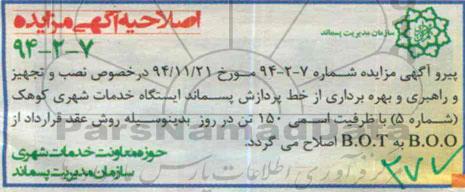 اصلاحیه آگهی مزایده
۹۴-۲-۷
سازمان مدیریت پسماند
پیرو آگهی مزایده شماره ۷-۲-۹۴ مورخ ۹۴/۱۱/۲۱ درخصوص نصب و تجهیز
و راهبری و بهره برداری از خط پردازش پسماند ایستگاه خدمات شهری کوهک
(شماره ۵) با ظرفیت اسمی ۱۵۰ تن در روز بدینوسیله روش عقد قرارداد از
B.O.O به B.O.T اصلاح می گردد.
حوزه معاونت خدمات شهری
سازمان مدیریت پسماند
۲۷۷
ParsNamadData